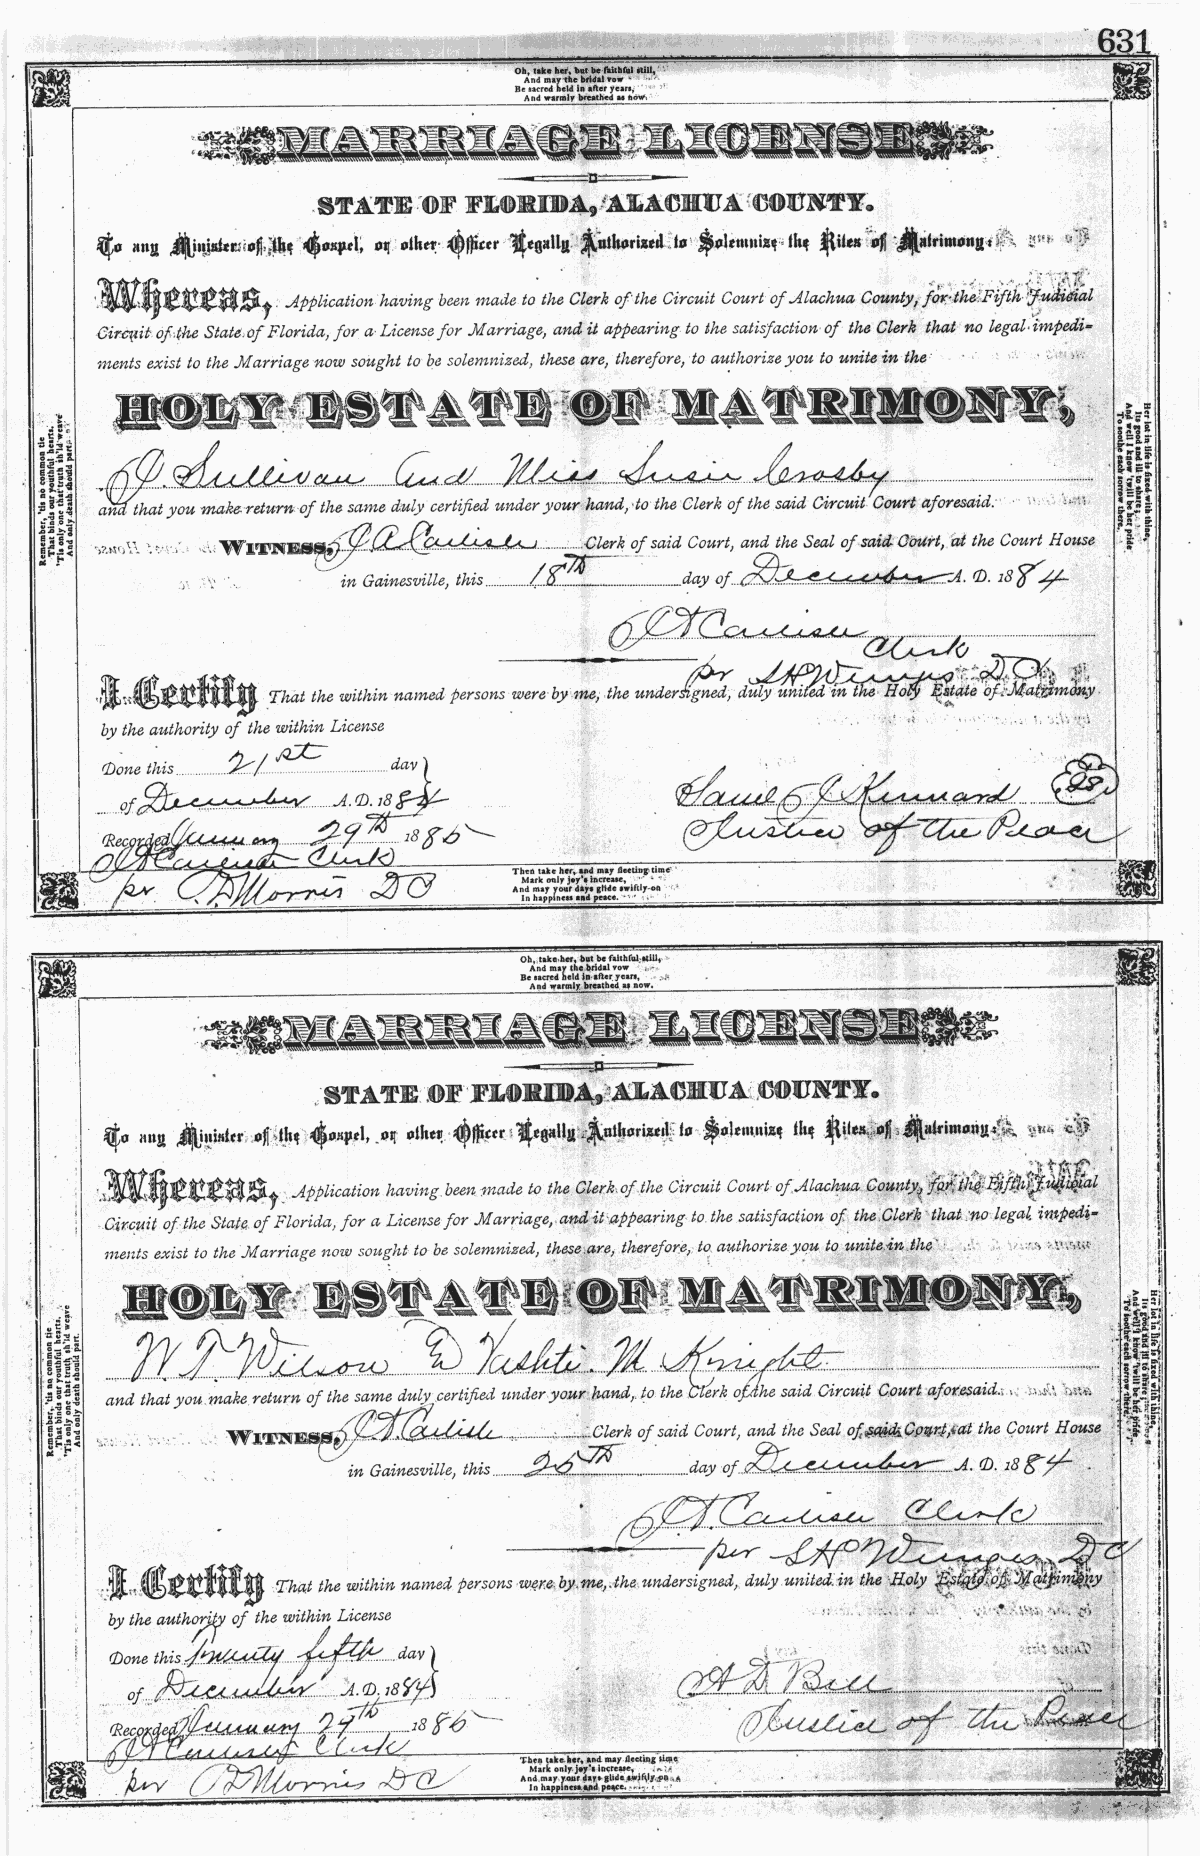 631
Oh, take her, but be faithful still,
And may the bridal vow
Be sacred held in after years,
And warmly breathed as now.
MARRIAGE LICENSE
STATE OF FLORIDA, ALACHUA COUNTY.
To any Minister of the Gospel, or other Officer Legally Authorized to Solemnize the Rites of Matrimony:
Whereas, Application having been made to the Clerk of the Circuit Court of Alachua County, for the Fifth Judicial
Circuit of the State of Florida, for a License for Marriage, and it appearing to the satisfaction of the Clerk that no legal impedi-
ments exist to the Marriage now sought to be solemnized, these are, therefore, to authorize you to unite in the
HOLY ESTATE OF MATRIMONY,
J Sullivan and Miss Susie Crosby
and that you make return of the same duly certified under your hand, to the Clerk of the said Circuit Court aforesaid.
WITNESS, J A Carlisle Clerk of said Court, and the Seal of said Court, at the Court House
in Gainesville, this 18th day of December A. D. 1884
J A Carlisle
Clerk
per S H Wienges D C
I Certify That the within named persons were by me, the undersigned, duly united in the Holy Estate of Matrimony
by the authority of the within License
Done this 21st day
of December A.D. 1884
Saml J Kennard
Justice of the Peace
Recorded January 29th 1885
J A Carlisle Clerk
per Morris D C
Remember, 'tis no common tie
That binds our youthful hearts.
'Tis only one that truth sh'ld weave
And only death should part.
Her lot in life is fixed with thine,
Its good and ill to share;
And well I know 'twill be her pride
To soothe each sorrow there.
Then take her, and may fleeting time
Mark only joy's increase,
And may your days glide swiftly on
In happiness and peace.
Oh, take her, but be faithful still,
And may the bridal vow
Be sacred held in after years,
And warmly breathed as now.
MARRIAGE LICENSE
STATE OF FLORIDA, ALACHUA COUNTY.
To any Minister of the Gospel, or other Officer Legally Authorized to Solemnize the Rites of Matrimony:
Whereas, Application having been made to the Clerk of the Circuit Court of Alachua County, for the Fifth Judicial
Circuit of the State of Florida, for a License for Marriage, and it appearing to the satisfaction of the Clerk that no legal impedi-
ments exist to the Marriage now sought to be solemnized, these are, therefore, to authorize you to unite in the
HOLY ESTATE OF MATRIMONY,
W. T. Wilson & Vashti. M Knight.
and that you make return of the same duly certified under your hand, to the Clerk of the said Circuit Court aforesaid.
WITNESS, J A Carlisle Clerk of said Court, and the Seal of said Court, at the Court House
in Gainesville, this 25th day of December A. D. 1884
J. A. Carlisle Clerk
per S H Wienges D C
I Certify That the within named persons were by me, the undersigned, duly united in the Holy Estate of Matrimony
by the authority of the within License
Done this Twenty fifth day
of December A.D. 1884
D Bell
Justice of the Peace
Recorded January 29th 1885
J A Carlisle Clerk
per Morris D C
Remember, 'tis no common tie
That binds our youthful hearts.
'Tis only one that truth sh'ld weave
And only death should part.
Her lot in life is fixed with thine,
Its good and ill to share;
And well I know 'twill be her pride
To soothe each sorrow there.
Then take her, and may fleeting time
Mark only joy's increase,
And may your days glide swiftly on
In happiness and peace.